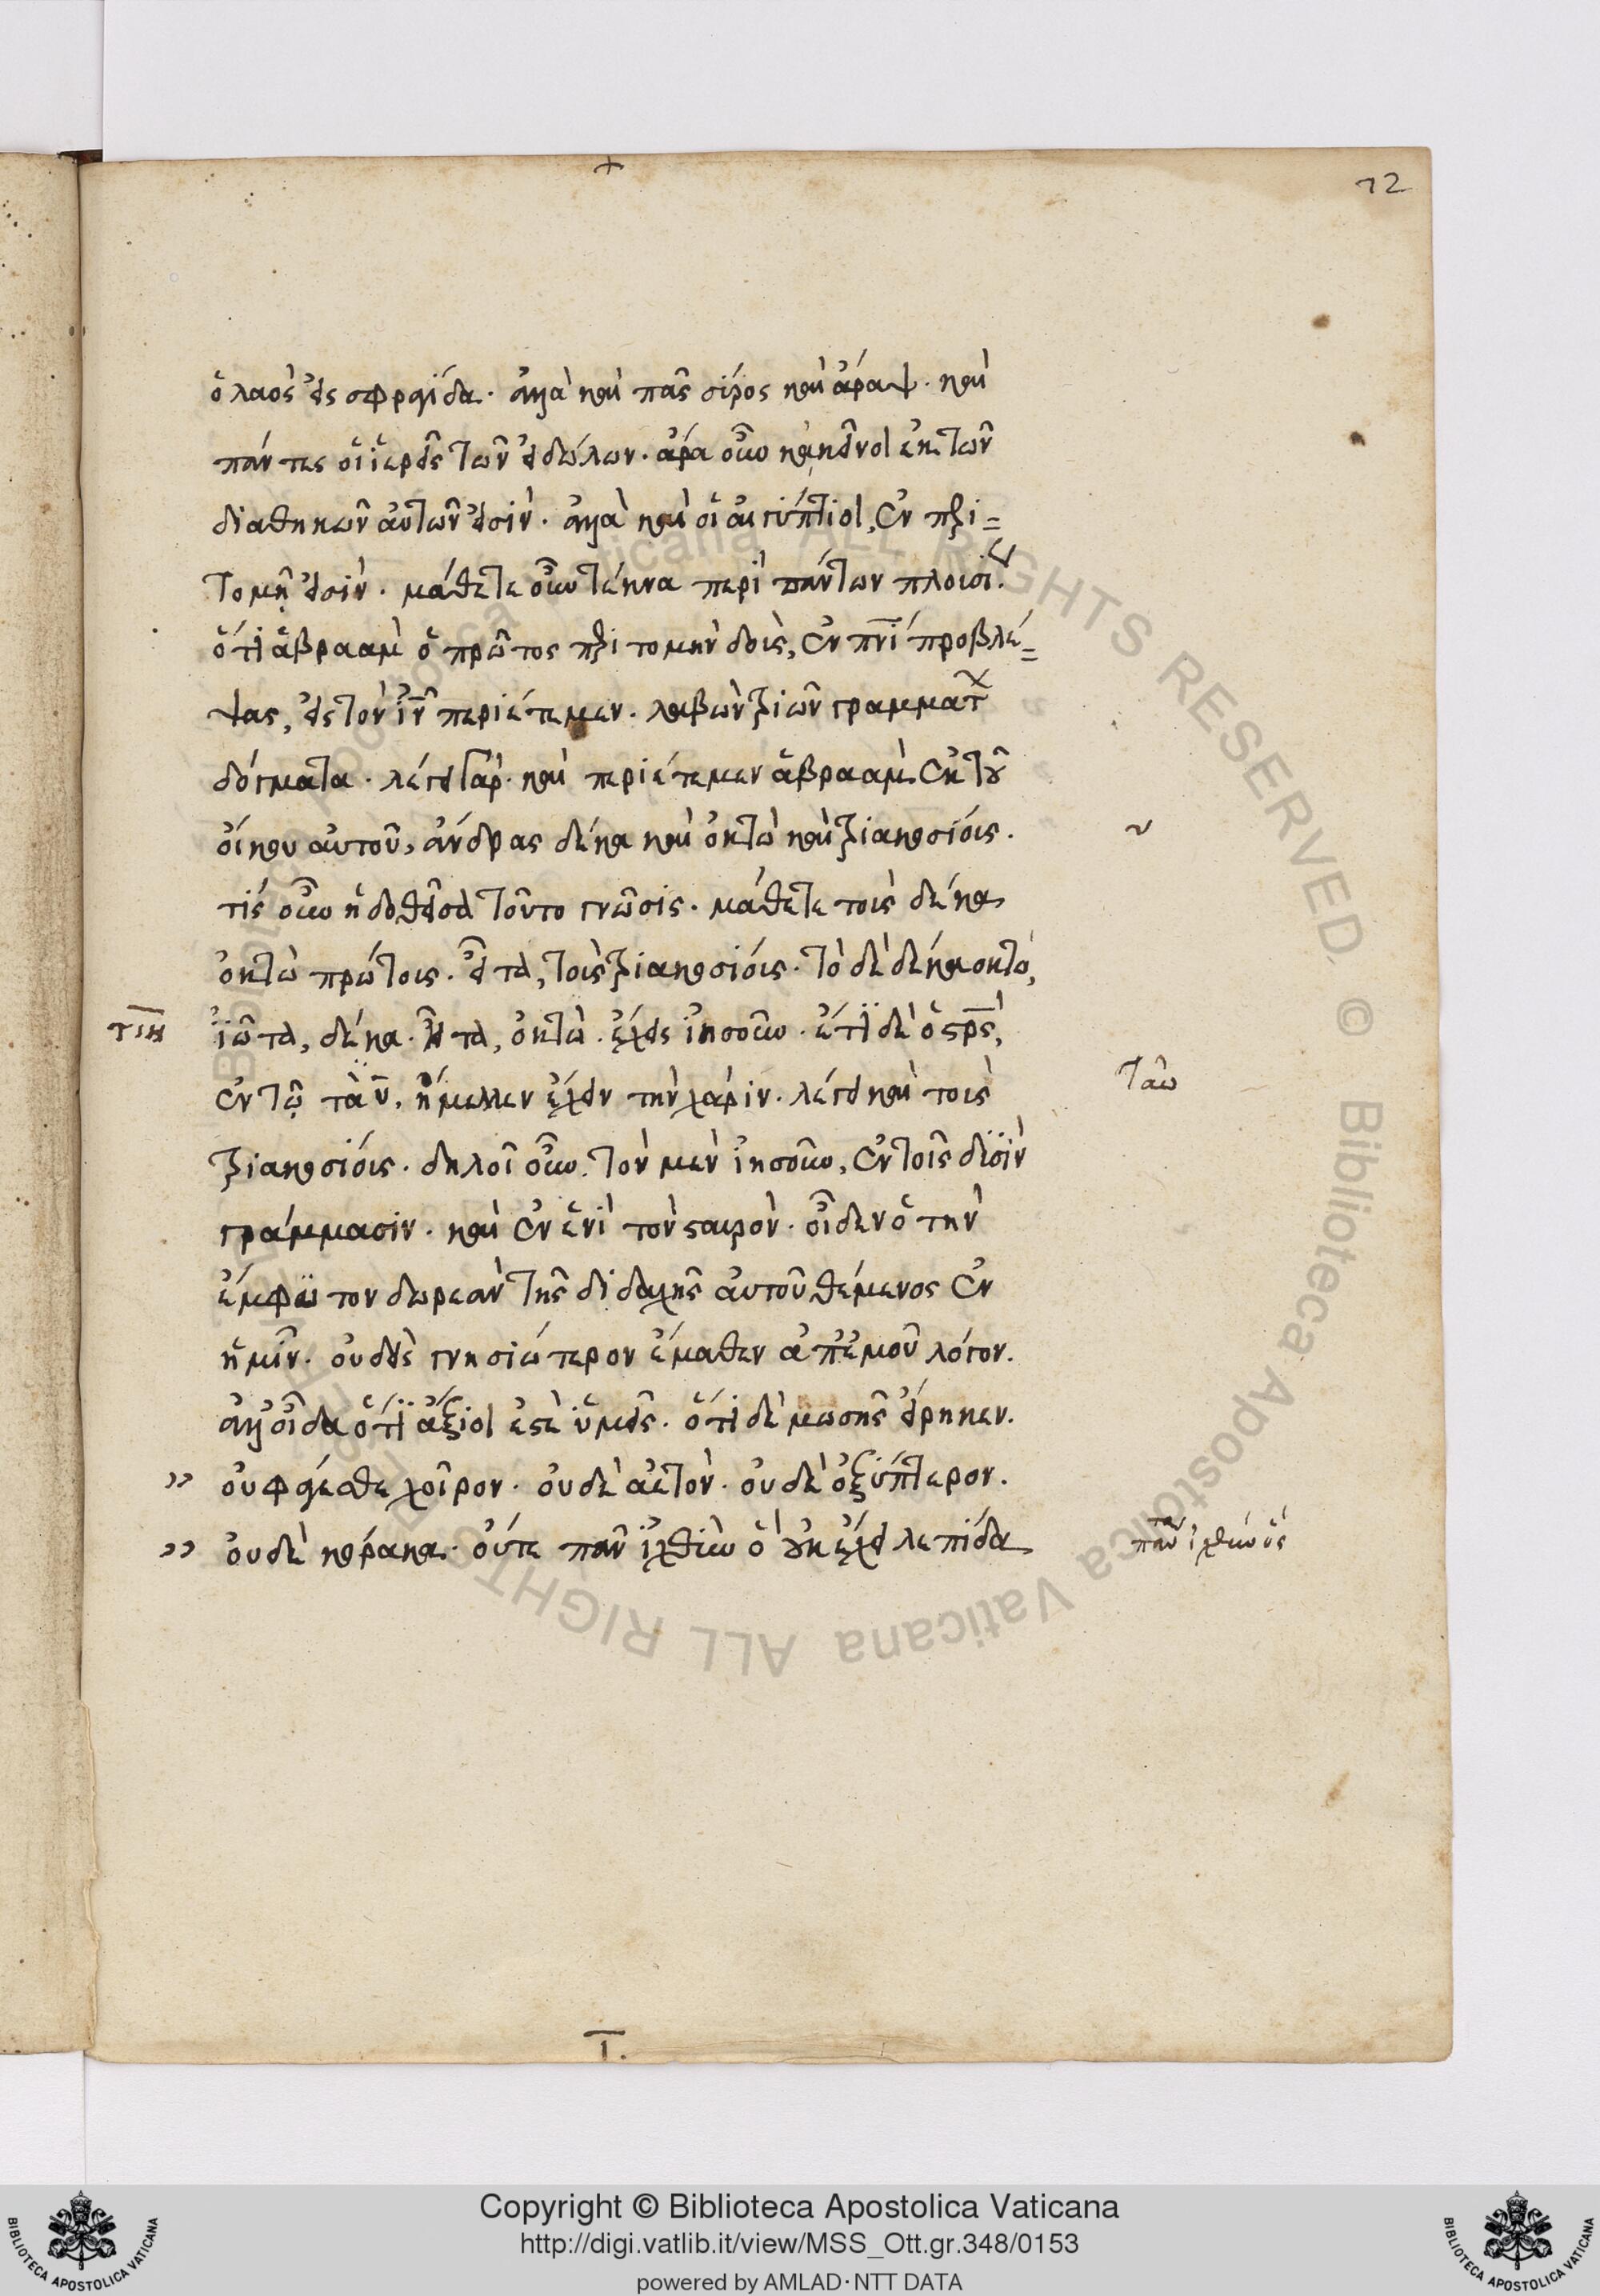 72
ὁ λαὸς εἰς σφραγίδα· ἀλλὰ καὶ πᾶς σύρος καὶ ἄραψ· καὶ
πάντες οἱ ἱερεῖς τῶν εἰδώλων· ἄρα οὖν κἀκεῖνοι ἐκ τῶν
διαθηκῶν αὐτῶν εἰσίν· ἀλλὰ καὶ οἱ αἰγύπτιοι, ἐν περι=
τομῇ εἰσίν· μάθετε οὖν τέκνα περὶ πάντων πλουσίως·
ὅτι ἁβραὰμ ὁ πρῶτος περιτομὴν δοὺς, ἐν πνι προβλέ=
ψας, εἰς τὸν ἰν περιέτεμεν· λαβὼν τριῶν γραμμάτων
δόγματα· λέγει γὰρ· καὶ περιέτεμεν ἁβραὰμ ἐκ τοῦ
οἴκου αὐτοῦ, ἄνδρας δέκα καὶ ὀκτὼ καὶ τριακοσίους·
τίς οὖν ἡ δοθεῖσα τοῦτο γνῶσις· μάθετε τοὺς δέκα
ὀκτὼ πρώτους· εἶτα, τοὺς τριακοσίους· τὸ δὲ δέκα ὀκτὼ,
τιη ἰῶτα, δέκα· ἦτα, ὀκτὼ· ἔχεις ἰησοῦν· ἔτι δὲ ὁ σρς,
ἐν τῷ ταυ, ἤμελλεν ἔχειν τὴν χάριν· λέγει καὶ τοὺς ταυ
τριακοσίους· δηλοῖ οὖν τὸν μὲν ἰησοῦν, ἐν τοῖς δυσὶν
γράμμασιν· καὶ ἐν ἑνὶ τὸν σταυρὸν· οἶδεν ὁ τὴν
ἔμφυτον δωρεὰν τῆς διδαχῆς αὐτοῦ θέμενος ἐν
ἡμῖν· οὐδεὶς γνησιώτερον ἔμαθεν ἀπ' ἐμοῦ λόγον·
ἀλλ' οἶδα ὅτι ἄξιοι ἐστὲ ὑμεῖς· ὅτι δὲ μωσῆς εἴρηκεν·
" οὐ φάγεσθε χοῖρον· οὐδὲ ἀετὸν· οὐδὲ ὀξύπτερον·
" οὐδὲ κόρακα· οὔτε πᾶν ἰχθὺν ὃ οὐκ ἔχει λεπίδα πάντα ἰχθὺν ὃς
ι.
Copyright © Biblioteca Apostolica Vaticana
http://digi.vatlib.it/view/MSS_Ott.gr.348/0153
powered by AMLAD·NTT DATA